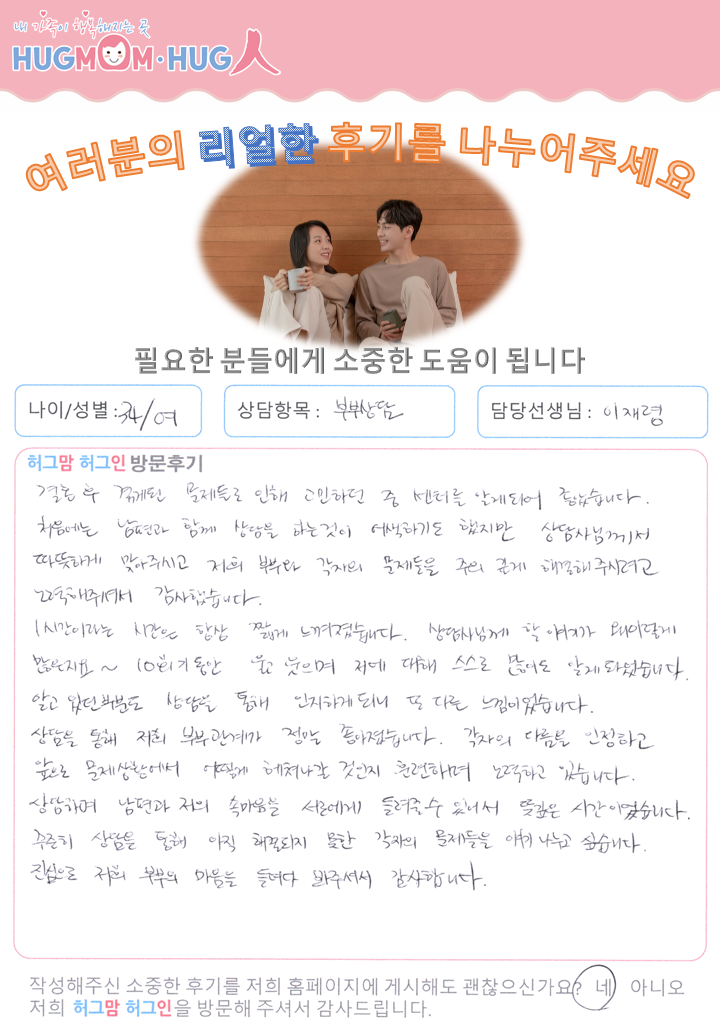 내 가족이 행복해지는 곳
HUGMOM·HUG人
여러분의 리얼한 후기를 나누어주세요
필요한 분들에게 소중한 도움이 됩니다
나이/성별 : 34/여
상담항목 : 부부상담
담당선생님 : 이재령
허그맘 허그인 방문후기
결혼 후 겪게된 문제들로 인해 고민하던 중 센터를 알게되어 좋았습니다.
처음에는 남편과 함께 상담을 하는것이 어색하기도 했지만 상담사님께서
따뜻하게 맞아주시고 저희 부부와 각자의 문제들을 주의 깊게 해결해주시려고
노력해주셔서 감사했습니다.
1시간이라는 시간은 항상 짧게 느껴졌습니다. 상담사님께 할 얘기가 왜이렇게
많은지요 ~ 10회기 동안 울고 웃으며 저에 대해 스스로 많이도 알게 되었습니다.
알고 있던 부분도 상담을 통해 인지하게 되니 또 다른 느낌이었습니다.
상담을 통해 저희 부부관계가 정말 좋아졌습니다. 각자의 다름을 인정하고
앞으로 문제상황에서 어떻게 헤쳐나갈 것인지 훈련하며 노력하고 있습니다.
상담하며 남편과 저의 속마음을 서로에게 들려줄수 있어서 뜻깊은 시간이었습니다.
꾸준히 상담을 통해 아직 해결되지 못한 각자의 문제들을 얘기 나누고 싶습니다.
진심으로 저희 부부의 마음을 들여다 봐주셔서 감사합니다.
작성해주신 소중한 후기를 저희 홈페이지에 게시해도 괜찮으신가요? 네 아니오
저희 허그맘 허그인을 방문해 주셔서 감사드립니다.